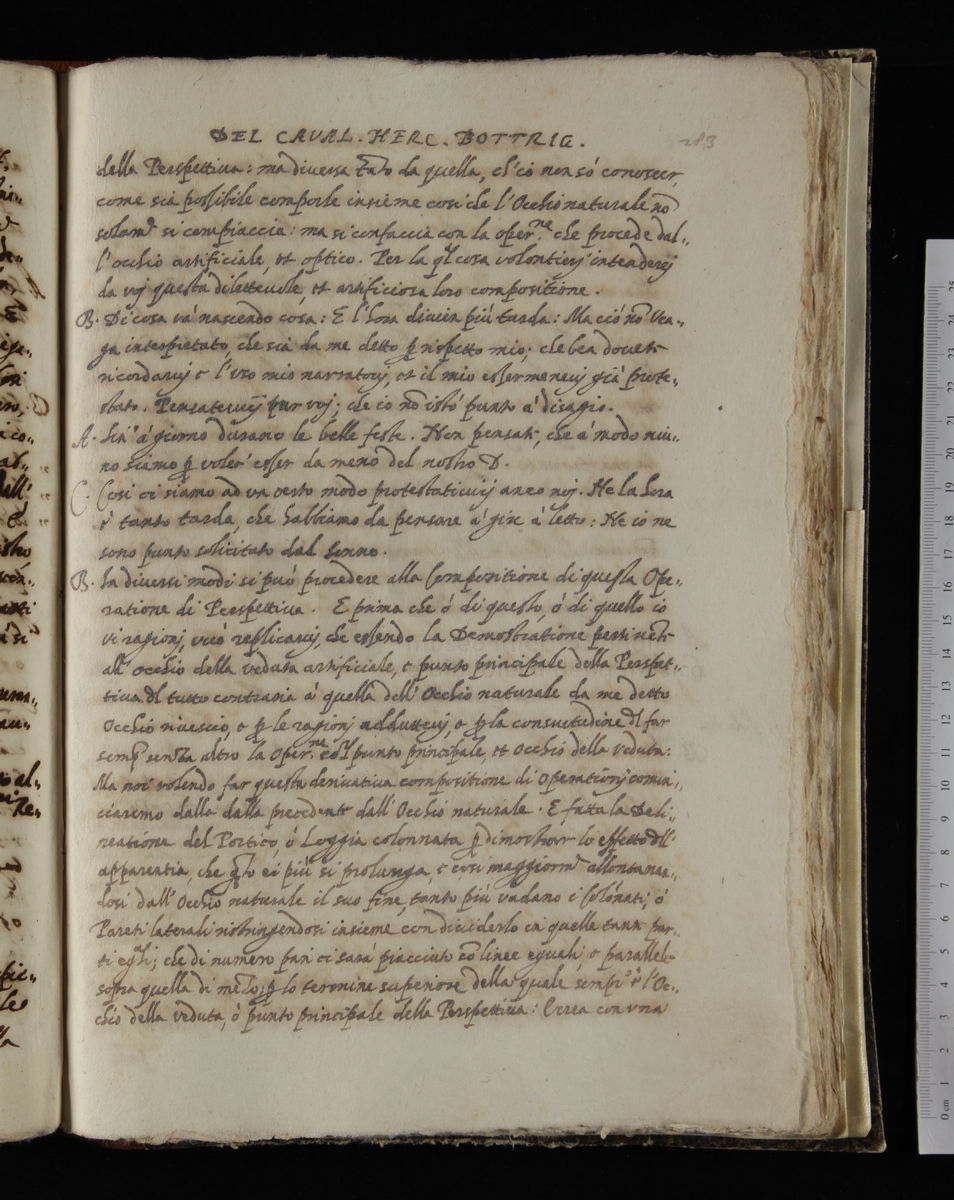 DEL CAVAL. HERC. BOTTRIG. 283
della Perspettiua: ma diuersa tãto da quella, ch'io non só conoscer,
come sia possibile comporle insieme cosi che l'Occhio naturale nõ
solam.te si compiaccia: ma si confaccia con la oper.ne che procede dal..
l'occhio artificiale, et optico. Per la ql cosa volontierj intenderej
da voj questa diletteuole, et artificiosa loro compositione.
B. Di cosa vá nascendo cosa: E l'hora diuien piú tarda: Ma ció nõ ven..
ga interpretato, che sia da me detto p rispetto mio; che ben douete
ricordaruj e l'vso mio narratouj, et il mio essermeneuj giá prote..
stato. Pensateuuij pur voj; che io nõ istó punto á disagio.
A. Sin' á giorno durano le belle feste. Non pensate, che á modo niu..
no siamo p voler' esser da meno del nostro D.
C. Cosi ci siamo ad vn certo modo protestatiuij anco noj. Ne la hora
é tanto tarda, che habbiamo da pensare á gire á letto: Ne io ne
sono punto solicitato dal Sonno.
B. In diuersi modi si puó procedere alla Compositione di questa Ope..
ratione di Perspettiua. E prima che ó di questo, ó di quello io
vi ragionj, vuó replicaruj, che essendo la Demostratione pertinente
all' occhio della veduta artificiale, e punto principale della Perspet..
tiua dl tutto contraria á quella dell' Occhio naturale da me detto
Occhio riuescio, e p le ragionj adduttevj, e p la consuetudine dl far
semp senza altro la Oper.ne col punto principale, et Occhio della veduta:
Ma noi volendo far questa deriuatiua compositione di Operationj comin..
ciaremo dalla dalla precedente dall' Occhio naturale. E fatta la Deli..
neatione del Portico, ó Loggia colonnata p dimostrare lo effetto dll'
apparentia, che qto ei piú si prolunga, e cosi maggiorm.te allontanan..
dosi dall' Occhio naturale il suo fine, tanto piú vadano i Colónati; ó
Pareti laterali ristringendosi insieme con diuiderlo in quelle tante par..
ti eqli; che di numero pari ci sará piacciuto cõ linee eguali, e parallele
sopra quella di mezo; p lo termine superiore della quale sempr' é l'Oc..
chio della veduta, ó punto principale della Perspettiua: Errea con vna